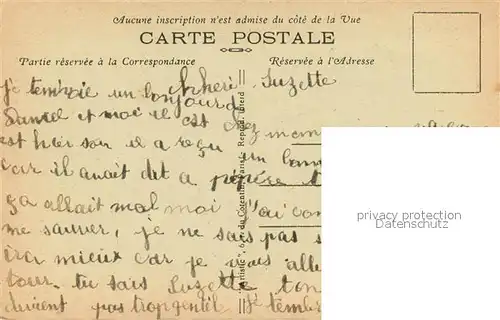 Aucune inscription n'est admise du côté de la Vue
CARTE POSTALE
Partie réservée à la Correspondance
Réservée à l'Adresse
chheri Suzette
je tenvoie un bonjour de
Daniel et moi il est chez mem
est hier soir il a reçu un
car il avait dit a pepère
ça allait mal moi j'ai
me sauver, je ne sais pas
irai mieux car je vais
tu sais Suzette ton
devient pas tropgentil je
"Artistic", 6, r. du Cotentin, Paris - Reprod. interd.
privacy protection
Datenschutz